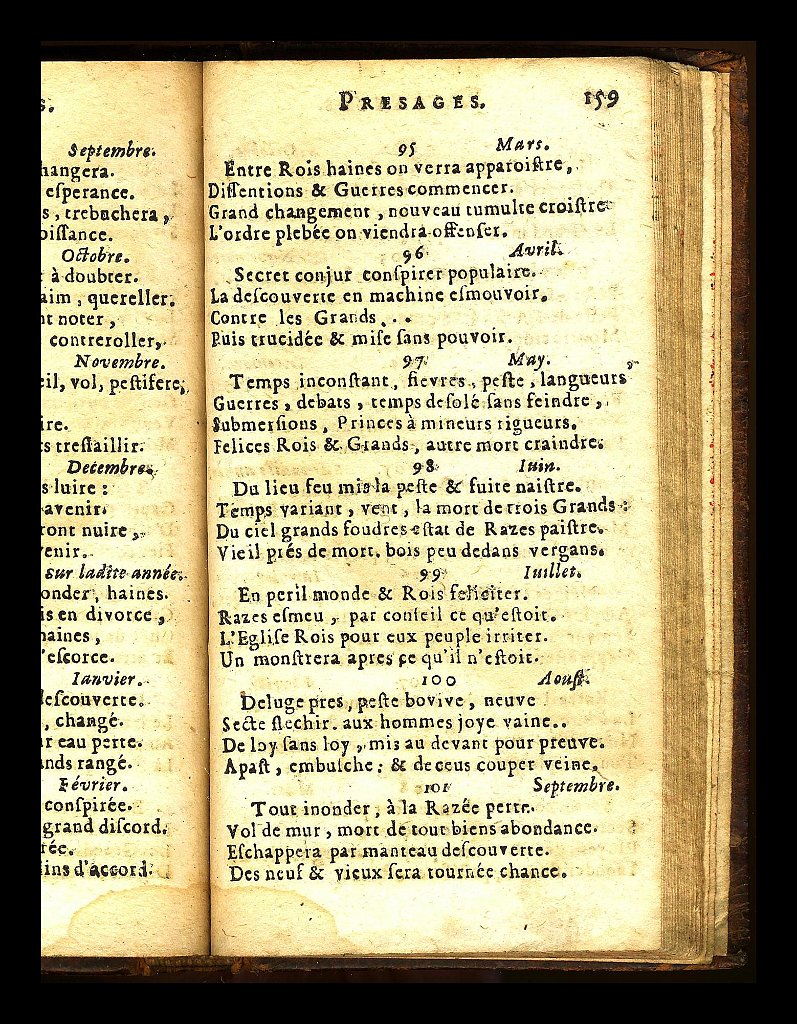 s.
Septembre.
hangera.
esperance.
s, trebuchera,
oissance.
Octobre.
à doubter.
aim, quereller.
nt noter,
contreroller,
Novembre.
eil, vol, pestifere,
ire.
s tressaillir.
Decembre.
s luire :
avenir.
ront nuire,
enir.
sur ladite année.
onder, haines.
is en divorce,
haines,
'escorce.
Ianvier.
descouverte.
, changé.
r eau perte.
nds rangé.
Février.
conspirée.
grand discord.
rée.
ins d'accord.
PRESAGES. 159
95 Mars.
Entre Rois haines on verra apparoiſtre,
Diſſentions & Guerres commencer.
Grand changement, nouveau tumulte croiſtre
L'ordre plebée on viendra offenſer.
96 Avril.
Secret conjur conſpirer populaire.
La deſcouverte en machine eſmouvoir.
Contre les Grands...
Puis trucidée & miſe ſans pouvoir.
97 May.
Temps inconſtant, fievres, peſte, langueurs,
Guerres, debats, temps deſolé ſans feindre,
Submerſions, Princes à mineurs rigueurs.
Felices Rois & Grands, autre mort craindre.
98 Iuin.
Du lieu feu mis la peſte & fuite naiſtre.
Temps variant, vent, la mort de trois Grands :
Du ciel grands foudres eſtat de Razes paiſtre.
Vieil prés de mort, bois peu dedans vergans.
99 Iuillet.
En peril monde & Rois feliciter.
Razes eſmeu, par conſeil ce qu'eſtoit.
L'Egliſe Rois pour eux peuple irriter.
Un monſtrera apres ce qu'il n'eſtoit.
100 Aouſt.
Deluge pres, peſte bovive, neuve
Secte flechir. aux hommes joye vaine..
De loy ſans loy, mis au devant pour preuve.
Apaſt, embuſche : & deceus couper veine.
101 Septembre.
Tout inonder, à la Razée perte.
Vol de mur, mort de tout biens abondance.
Eſchappera par manteau deſcouverte.
Des neuf & vieux ſera tournée chance.